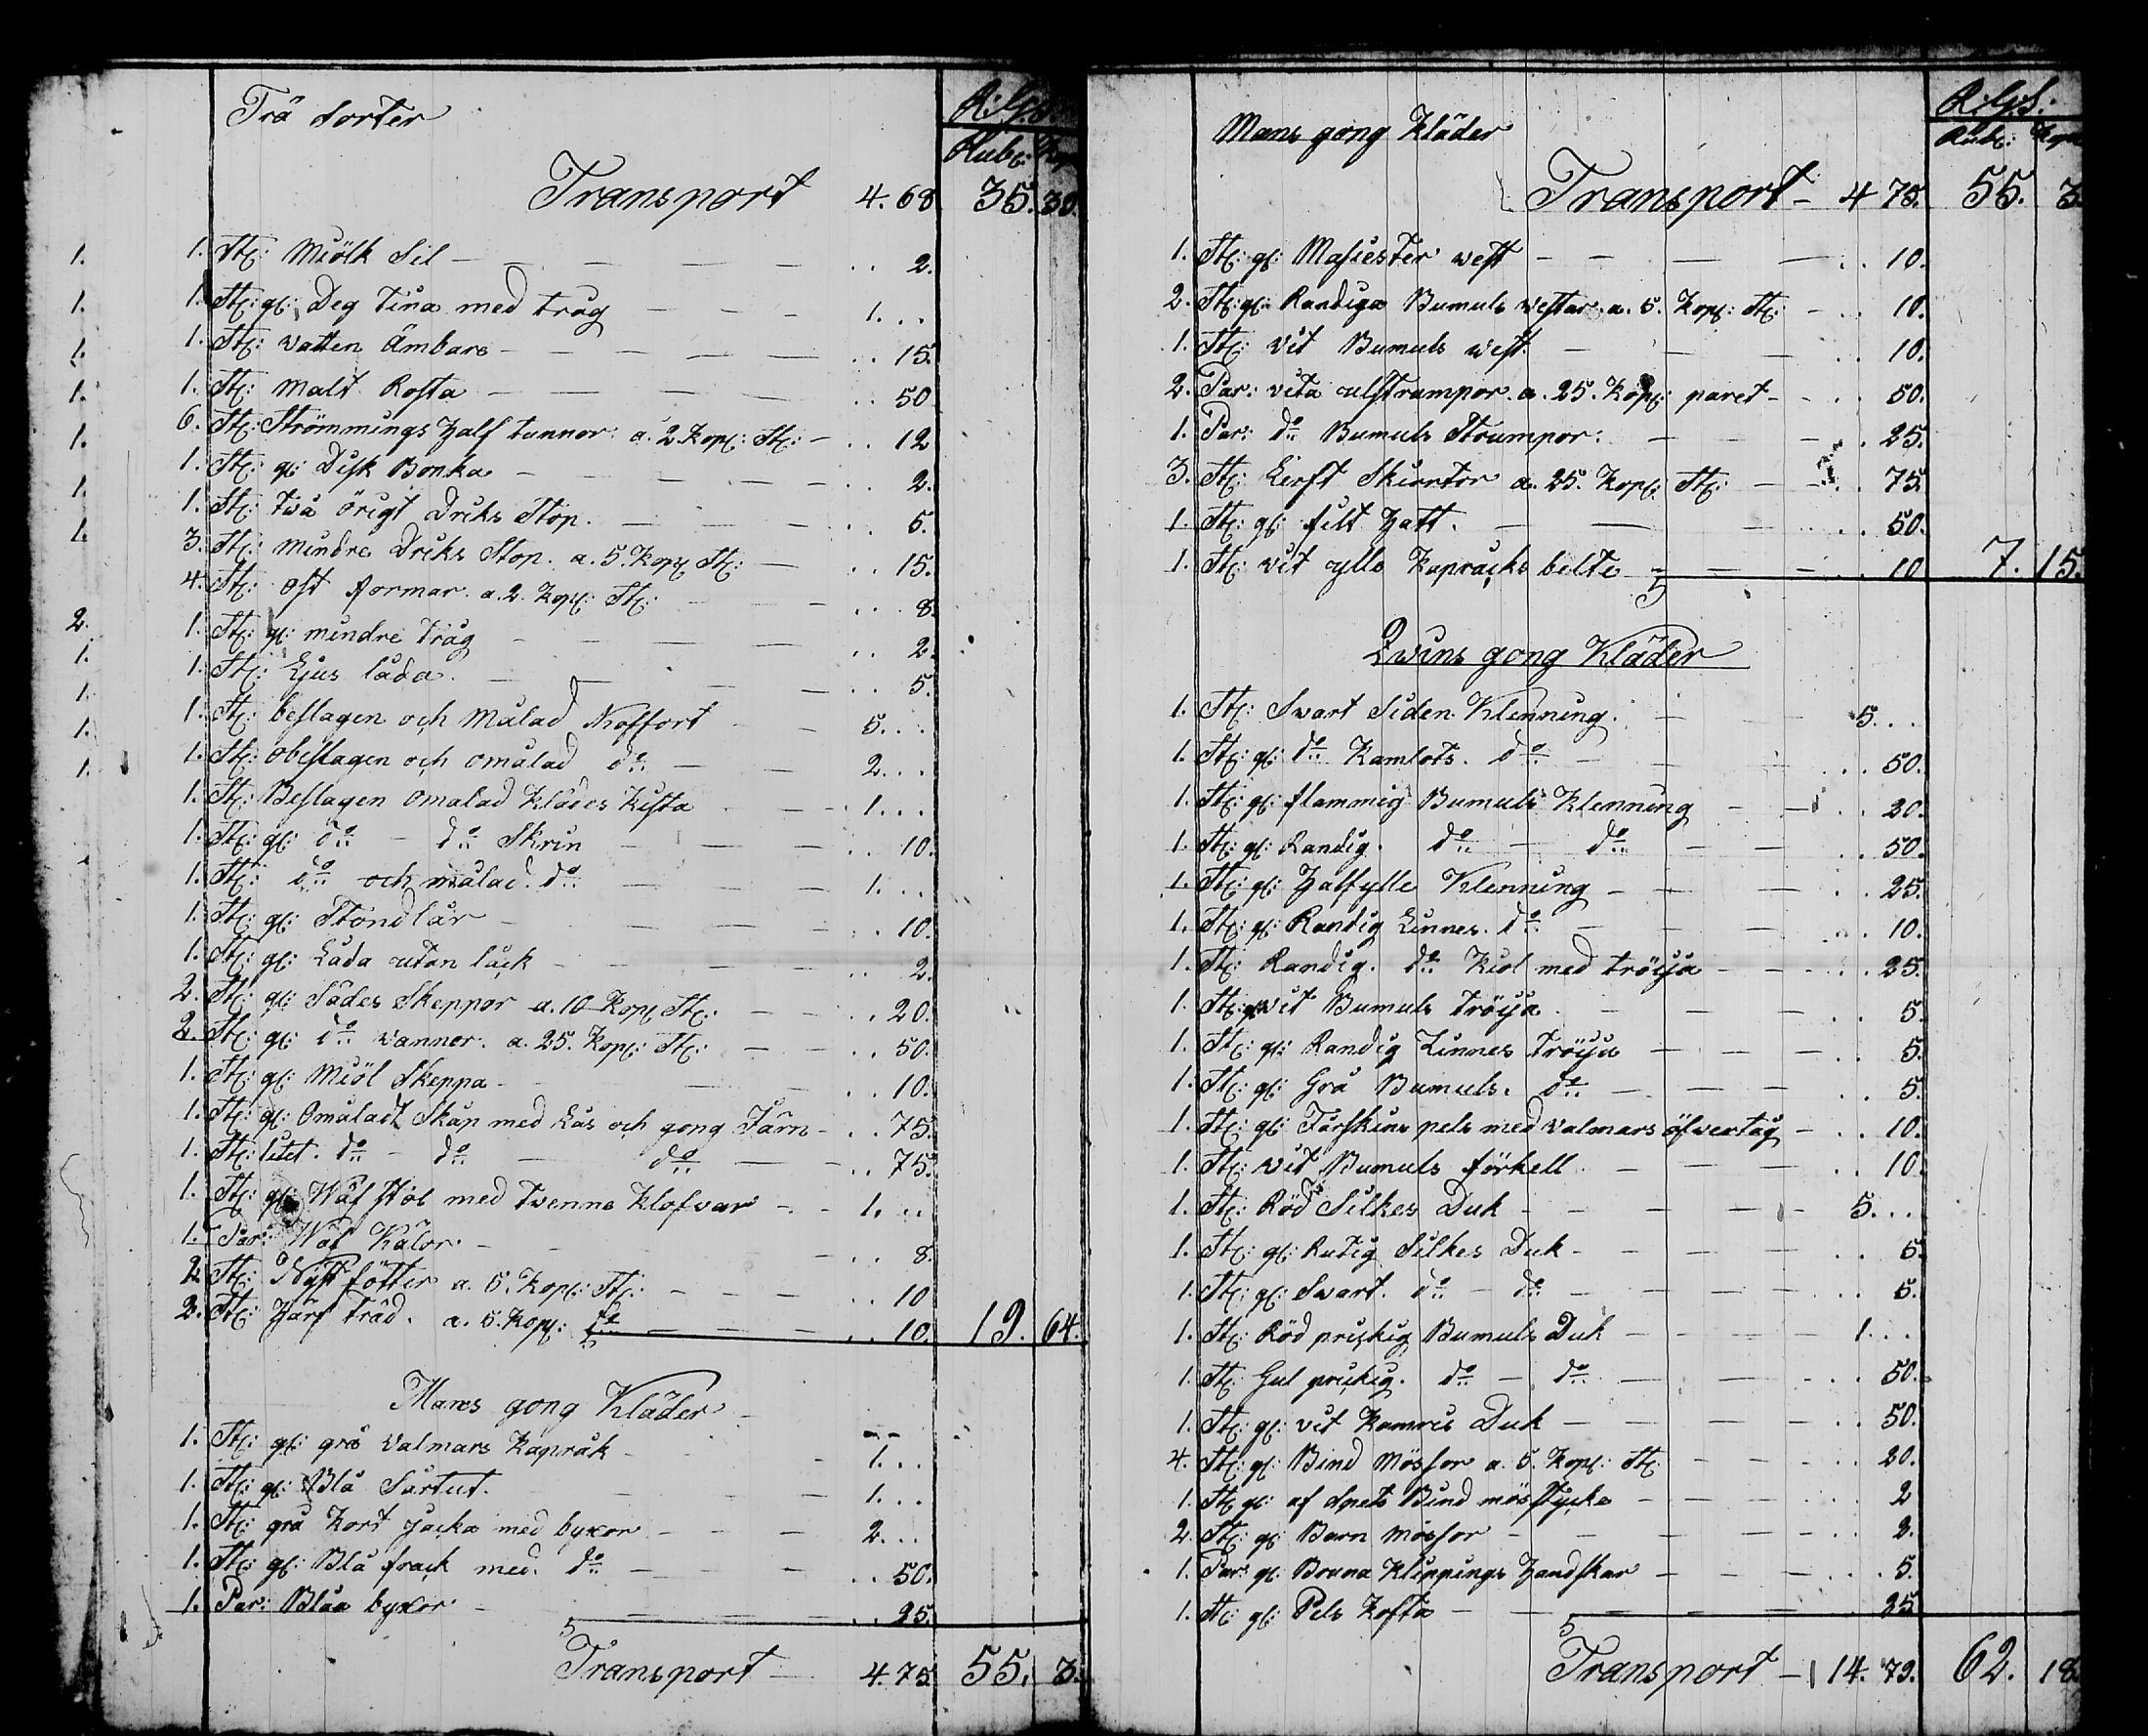 Trä Sorter
R:G:S:
Rub: Kop
Transport 4. 68 35. 39.
1. 1. St: Miölk Sil .. 2.
1. 1. St: gl: Deg tina med tråg 1. ..
1. 1. St: vatten Ämbare .. 15.
1. 1. St: Malt Rosta .. 50
1. 6. St: Strömmings Half tunnor: a. 2 Kop: St: .. 12
1. 1. St: gl: Disk Bonka .. 2.
1. 1. St: två örigt Driks Stop. .. 5.
3. St: mindre Driks Stop. a. 5. Kop: St: .. 15.
4. St: Ost formar. a. 2. Kop: St: .. 8.
2. 1. St: gl: mindre tråg .. 2.
1. 1. St: Ljus låda. .. 5.
1. 1. St: beslagen och målad Koffort 5. ..
1. 1. St: obeslagen och omålad do 2. ..
1. 1. St: Beslagen omalad klädes Kista 1. ..
1. St: gl: do - do Skrin .. 10.
1. St: do och målad. do 1. ..
1. St: gl: Stond lår .. 10.
1. St: gl: Låda utan låck .. 2.
2. St: gl: Sädes Skeppor a. 10 Kop: St: .. 20.
2. St: gl: do vannor. a. 25. Kop: St: .. 50.
1. St: gl: Miöl Skeppa .. 10.
1. St: gl: Omåladt Skåp med Lås och gong Järn .. 75.
1. St: litet. do - do - do .. 75.
1. St: gl: Wäf stol med twenne Klofwar 1. ..
1. Par: Wäf Kälor .. 8.
2. St: Nyst fötter a. 5. Kop: St: .. 10
2. St: Harf träd. a. 5. Kop: St .. 10. 19. 64.
Mans gong Kläder
1. St: gl: grå Valmars Kapråk 1. ..
1. St: gl: Blå Surtut. 1. ..
1. St: grå Kort jacka med byxor 2. ..
1. St: gl: Blå frack med. do .. 50.
1. Par: Blåa byxor .. 25.
Transport 4. 75 55. 3.
Mans gong Kläder
R:G:S:
Rub: Kop
Transport - 4 75. 55. 3.
1. St: gl: Masiester west .. 10.
2. St: gl: Randiga Bumuls westar. a. 5. Kop: St: .. 10.
1. St: vit Bumuls west. .. 10.
2. Par: vita ulstrumpor. a. 25. Kop: paret .. 50.
1. Par: do Bumuls Strumpor: .. 25.
3. St: Lerft Skiortor a. 25. Kop: St: .. 75
1. St: gl: filt Hatt. .. 50.
1. St: vit ylle Kapråcks bälte .. 10 7. 15.
Qwins gong Kläder
1. St: Swart Siden Klenning. 5. ..
1. St: gl: do Kamlots. do .. 50.
1. St: gl: flammig Bumuls Klenning .. 20.
1. St: gl: Randig. do - do .. 50.
1. St: gl: Halfylle Klenning .. 25.
1. St: gl: Randig Linnes. do .. 10.
1. St: Randig. do Kiol med tröija .. 25.
1. St: gl: vit Bumuls tröija. .. 5.
1. St: gl: Randig Linnes tröija .. 5.
1. St: gl: Grå Bumuls. do .. 5.
1. St: gl: Fårskins pels med valmars öfvertåg .. 10.
1. St: wit Bumuls förkell. .. 10.
1. St: Röd Silkes Duk 5. ..
1. St: gl: Rutig Silkes Duk .. 5.
1. St: gl: Swart. do - do .. 5.
1. St: Röd prickig Bumuls Duk 1. ..
1. St: Gul prickig. do - do .. 50.
1. St: gl: vit Kamris Duk .. 50.
4. St: gl: Bind Mössor a. 5. Kop: St: .. 20.
1. St: gl: af spets Bind mös stycke .. 2
2. St: gl: Barn mössor .. 2.
1. Par: gl: Bruna Klippings Handskar .. 5.
1. St: gl: Pels Kofta .. 25
Transport - 14. 79. 62. 18.